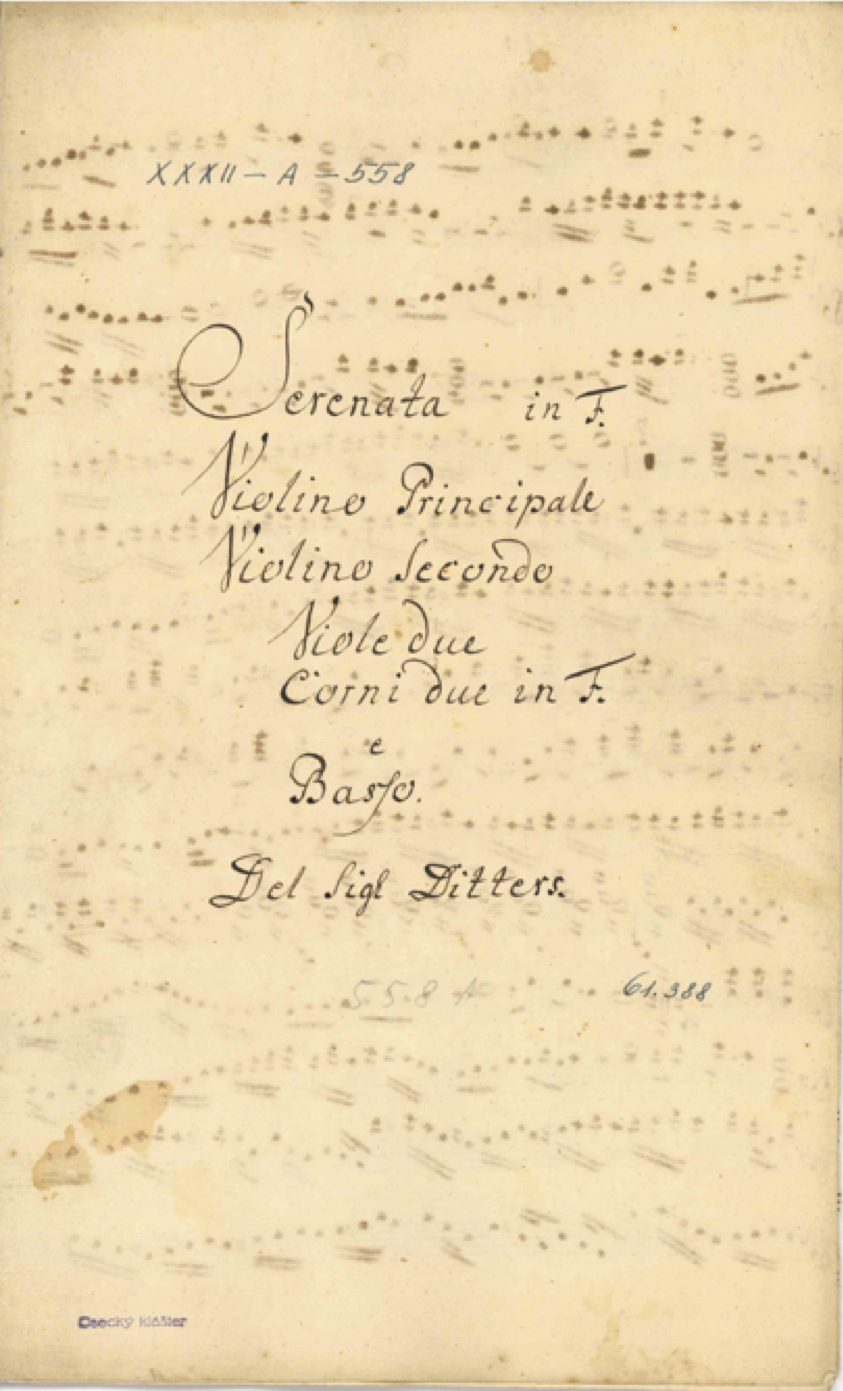 XXXII - A - 558
Serenata in F.
Violino Principale
Violino Secondo
Viole due
Corni due in F.
e
Basso.
Del Sigl Ditters.
558 A
61.388
Osecký klášter